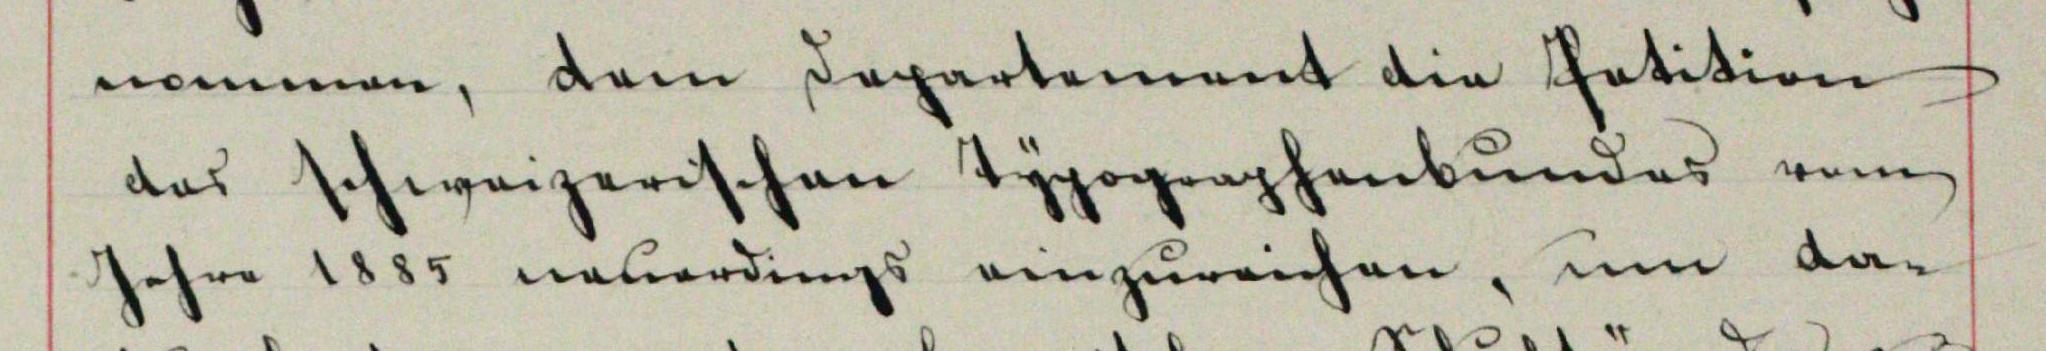 nommen, dem Departement die Petition
des schweizerischen Typographenbundes vom
Jahre 1885 neuerdings einzureichen, um da-